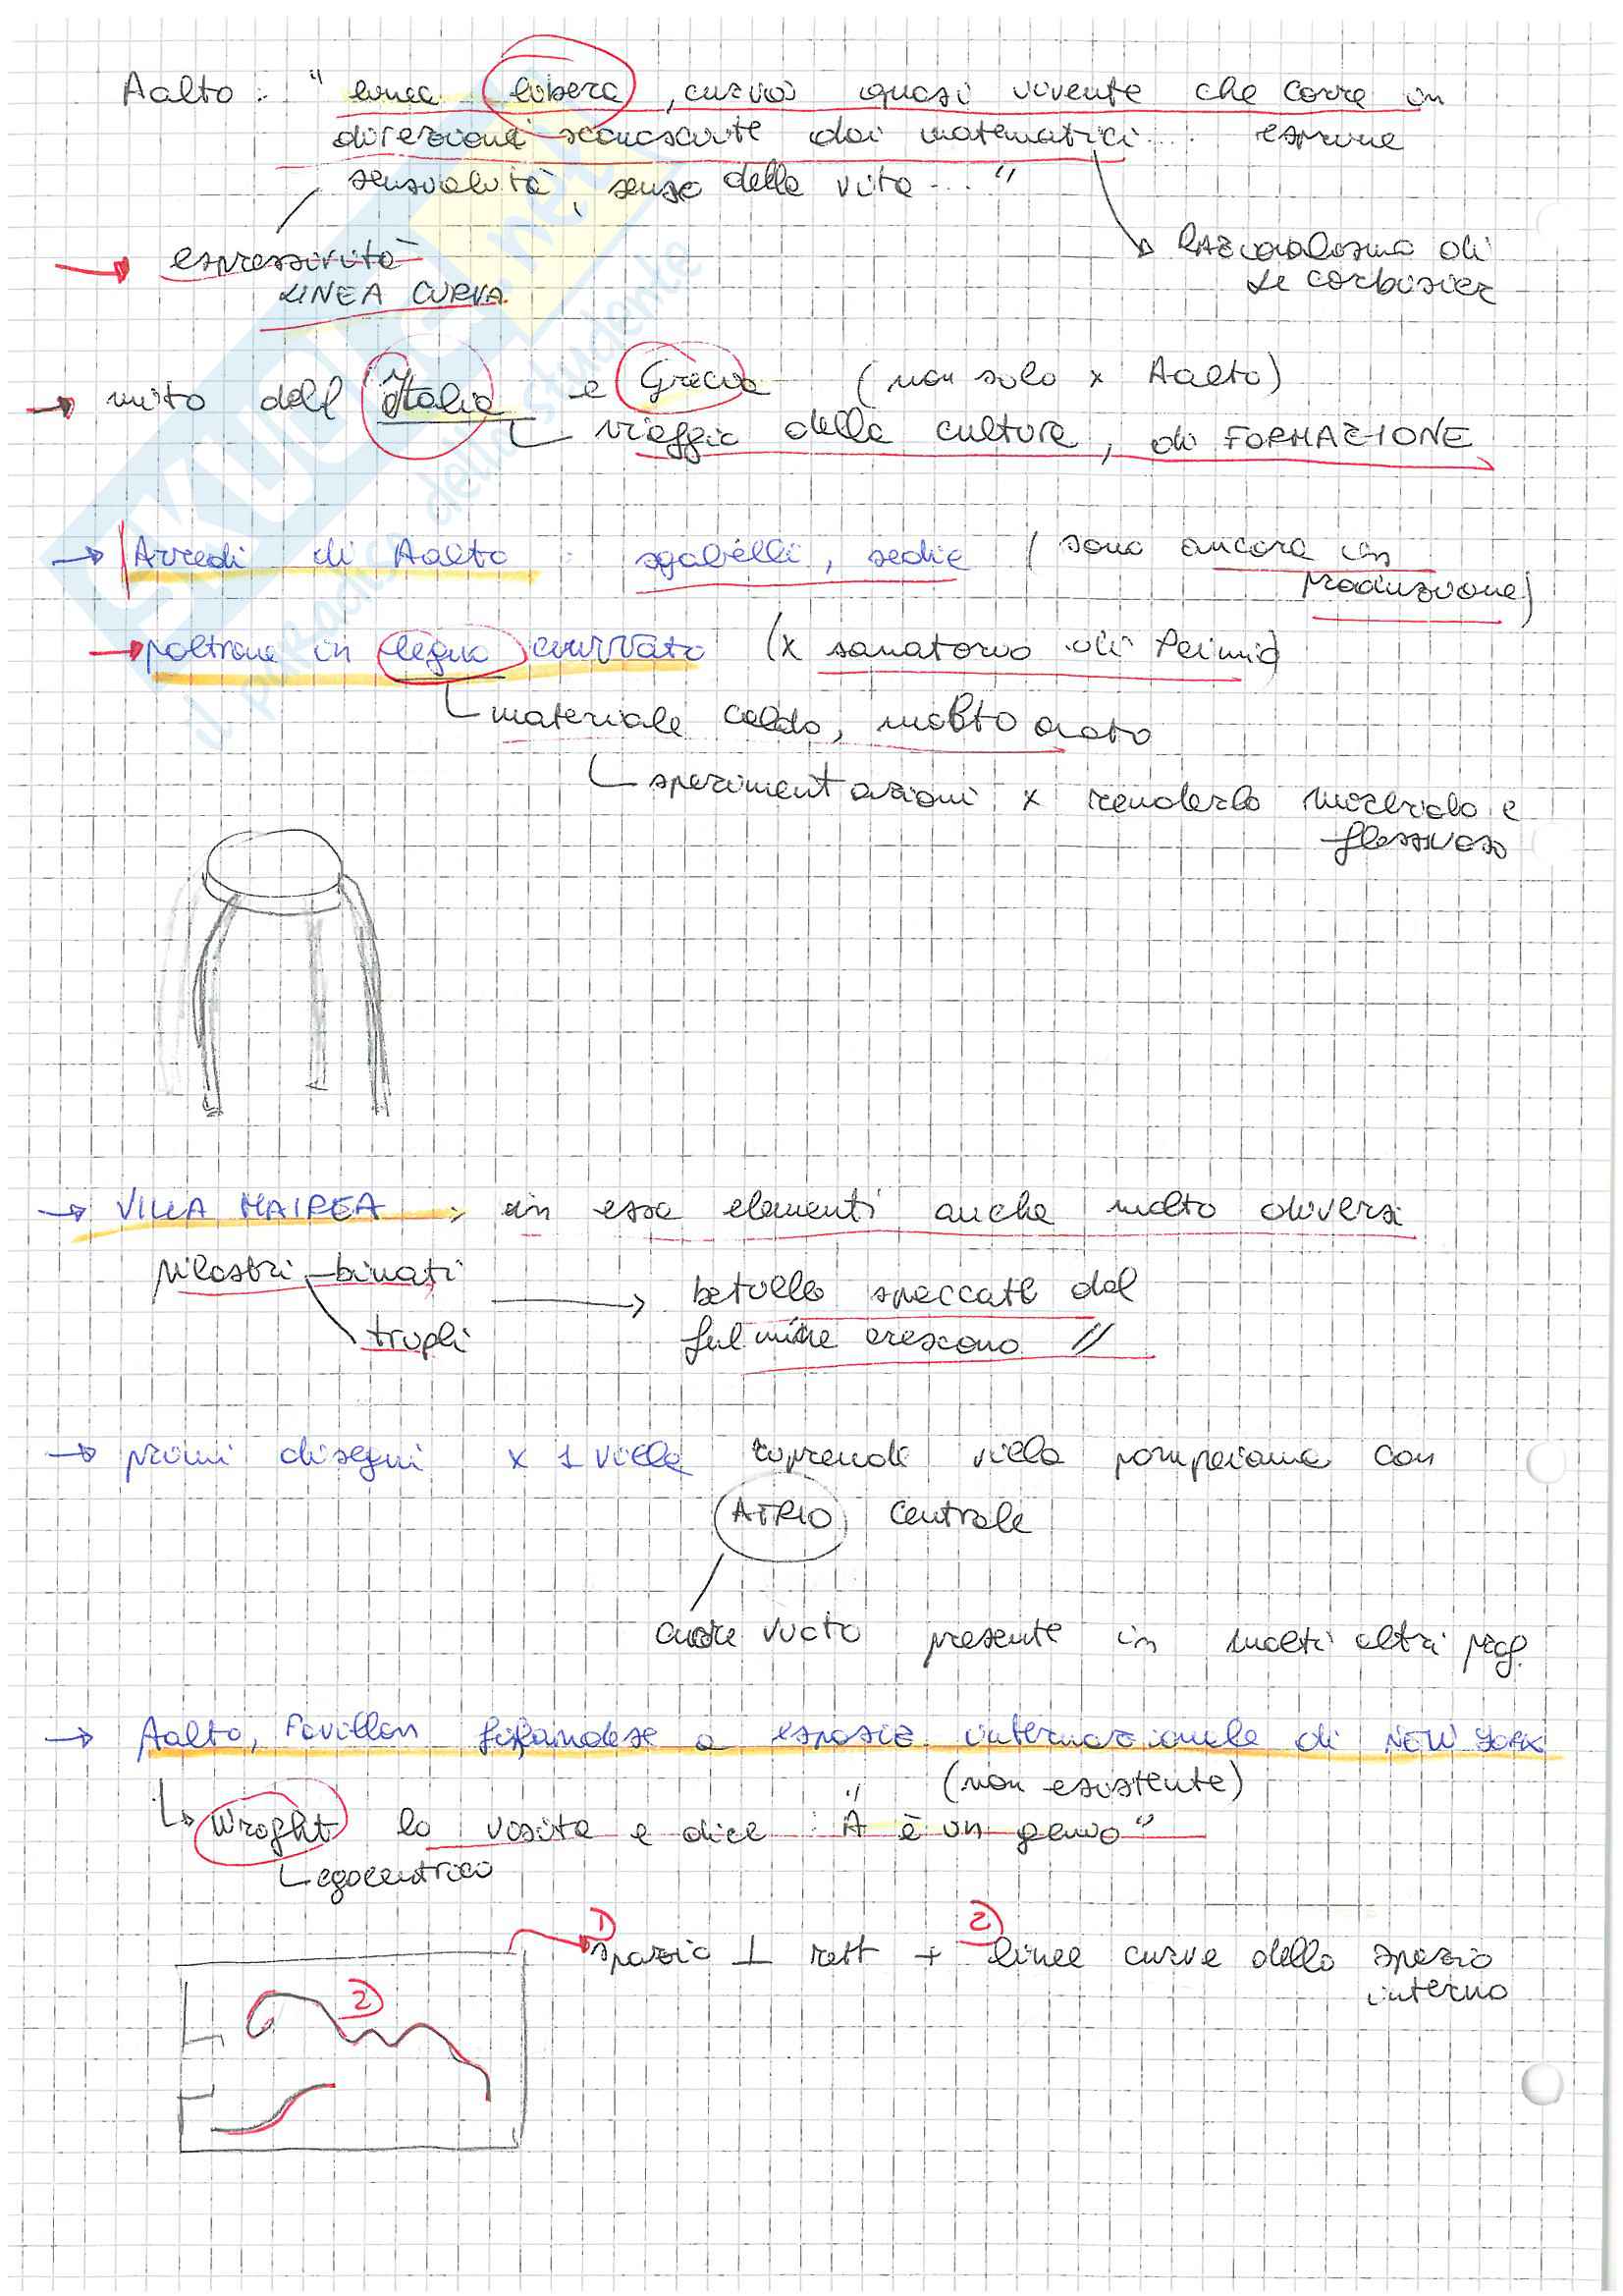 Aalto : " linea libera, curva quasi vivente che corre in
direzioni sconosciute dai matematici... esprime
sensualità, senso della vita ... "
espressività
LINEA CURVA
Razionalismo di
Le corbusier
mito dell'Italia e Grecia (non solo x Aalto)
viaggio della cultura, di FORMAZIONE
Arredi di Aalto : sgabelli, sedie (sono ancora in
produzione)
poltrone in legno curvato (x sanatorio di Paimio)
materiale caldo, molto usato
sperimentazioni x renderlo morbido e
flessuoso
VILLA MAIREA : in essa elementi anche molto diversi
pilastri binati
tripli
betulle spaccate dal
fulmine crescono //
primi disegni x 1 villa riprende villa pompeiana con
ATRIO centrale
cuore vuoto presente in molti altri prog.
Aalto, Pavillon finlandese a esposiz. internazionale di NEW YORK
(non esistente)
Wright lo visita e dice : "A è un genio"
egocentrico
1) 2)
spazio ⊥ rett + linee curve dello spazio
interno
2)
SKUOLA.net
il paradiso dello studente